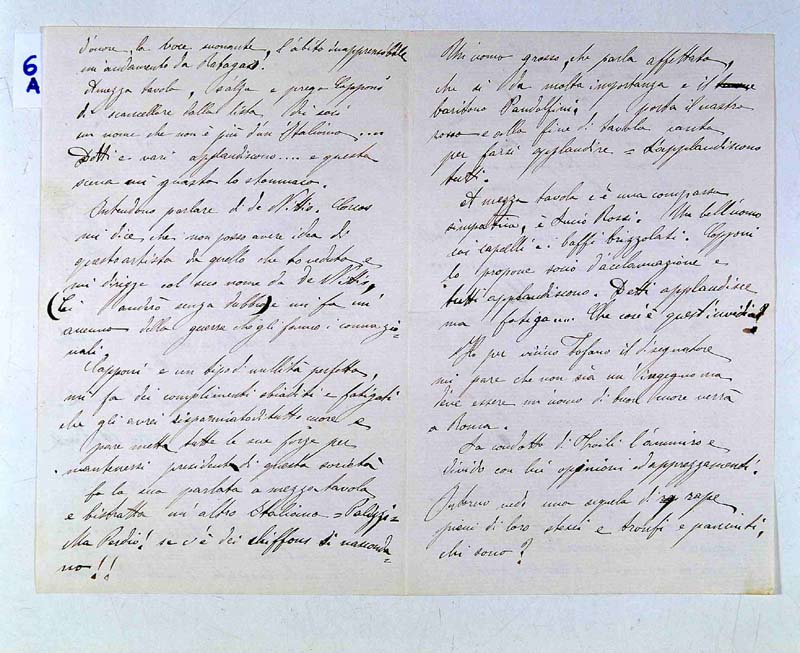 6
A
d'onore, la voce suonante, l'abito inapprensibile
un andamento da Rafagas.
A mezza tavola, s'alza e prega Capponi
di scancellare dalla lista dei soci
un nome che non è più d'un Italiano....
Detti e vari applaudiscono.... e questa
scena mi guasta lo stomaco.
Intendono parlare di de Nittis.
mi dice che non posso avere idea di
quest'artista da quello che ho veduto e
mi dirigge col suo nome da de Nittis,
(Ci andrò senza dubbio) e mi fa un
cenno della guerra che gli fanno i connazio-
nali.
Capponi e un tipo di nullità perfetta,
mi fa dei complimenti sbiaditi e fatigati
che gli avrei risparmiato di tutto cuore e
pare metta tutte le sue forze per
mantenersi presidente di questa società
fa la sua parlata a mezza tavola
e bistratta un'altro Italiano = Palizzi =
Ma Perdio! se v'è dei chiffons si nasconda-
no!!
Un uomo grosso, che parla affettato,
che si da molta importanza e il
baritono Pandolfini. porta il nastro
rosso e alla fine di tavola canta
per farsi applaudire = L'applaudiscono
tutti.
A mezza tavola c'è una comparsa
simpatica, è Lucio Rossi. Un bell'uomo
coi capelli e i baffi brizzolati. Capponi
lo propone socio d'acclamazione e
tutti applaudiscono. Detti applaudisce
ma fatiga.... Che cos'è quest'invidia?
Ho per vicino Tofano il disegnatore
mi pare che non sia un ingegno ma
deve essere un uomo di buon cuore verrà
a Roma.
La condotta di l'ammiro e
divido con lui opinioni ed apprezzamenti.
Intorno vedo una sequela di rape
pieni di loro stessi e tronfi e pasciuti,
chi sono?